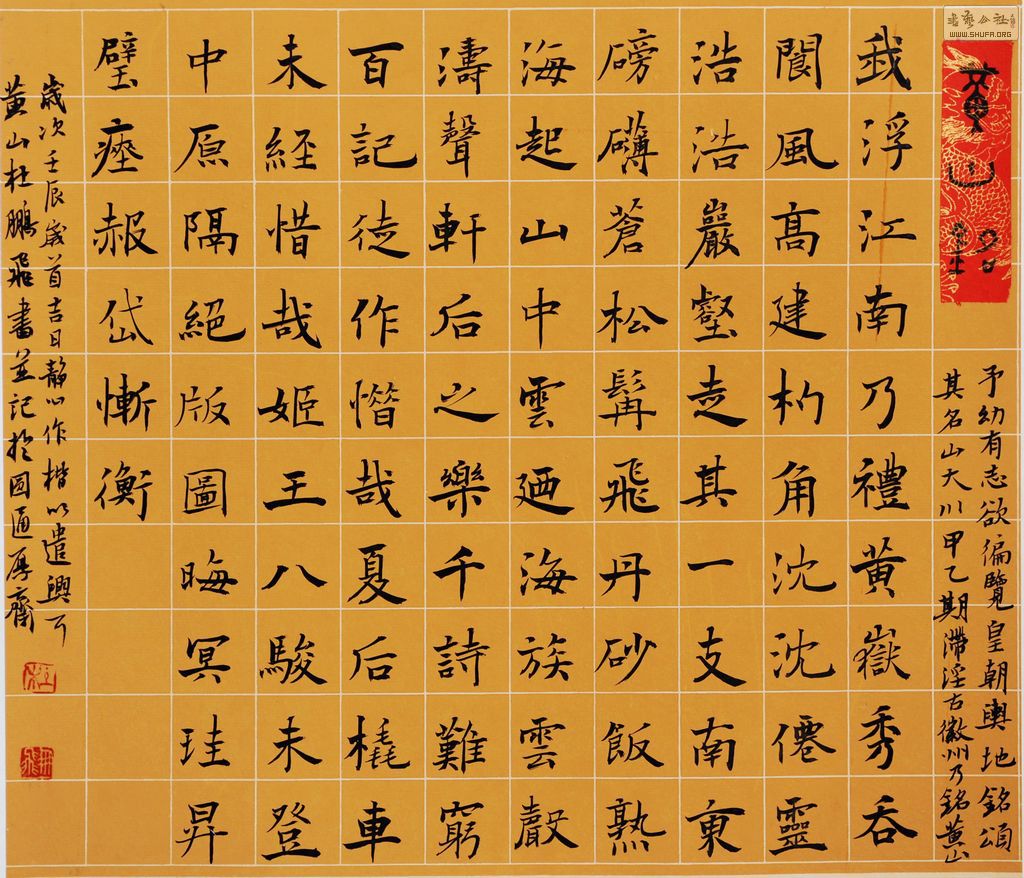 書藝公社
WWW.SHUFA.ORG
黄山銘
予幼有志欲徧覽皇朝輿地銘頌
其名山大川甲乙期滯淫古徽州乃銘黄山
我浮江南乃禮黄嶽秀吞
閬風高建杓角沈沈僊靈
浩浩巖壑走其一支南東
磅礴蒼松髯飛丹砂飯熟
海起山中雲廼海族雲嚴
濤聲軒后之樂千詩難窮
百記徒作憯哉夏后橇車
未經惜哉姬王八駿未登
中原隔絕版圖晦冥珪昇
璧瘞赧岱慚衡
歲次壬辰歲首吉日靜心作楷以遣興耳
黄山杜鵬飛書並記於圓通厚齋